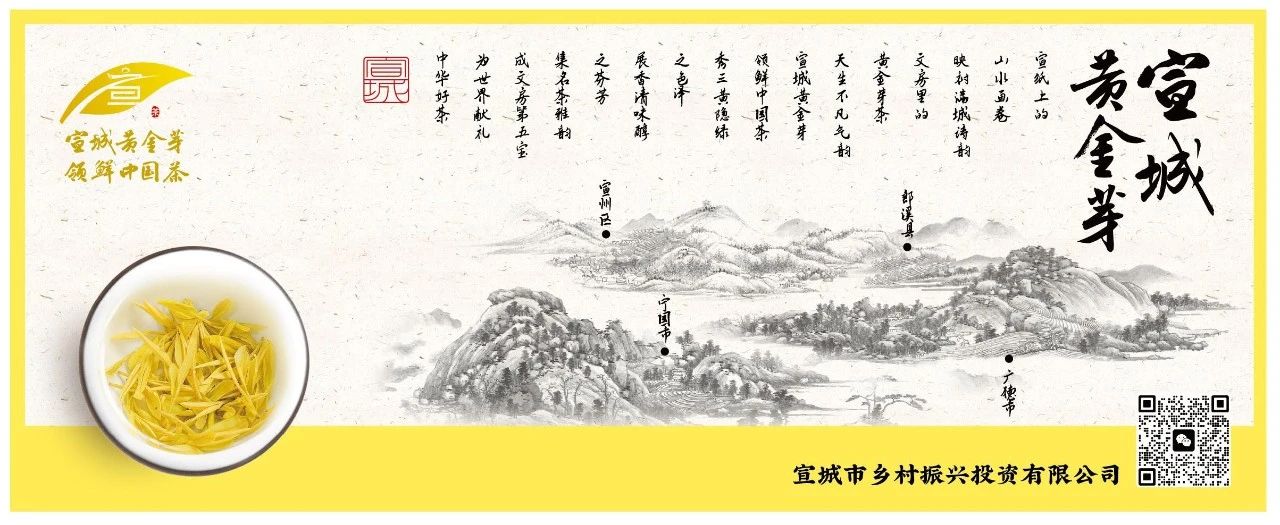 宣城
黄金芽
宣纸上的
山水画卷
映树满城涛韵
文房里的
黄金芽茶
天生不凡气韵
宣城黄金芽
领鲜中国茶
秀三黄隐绿
之色泽
展香清味醇
之芬芳
集名茶雅韵
成文房第五宝
为世界献礼
中华好茶
宣城
宣
茶
宣城黄金芽
领鲜中国茶
宣州区
郎溪县
宁国市
广德市
宣城市乡村振兴投资有限公司